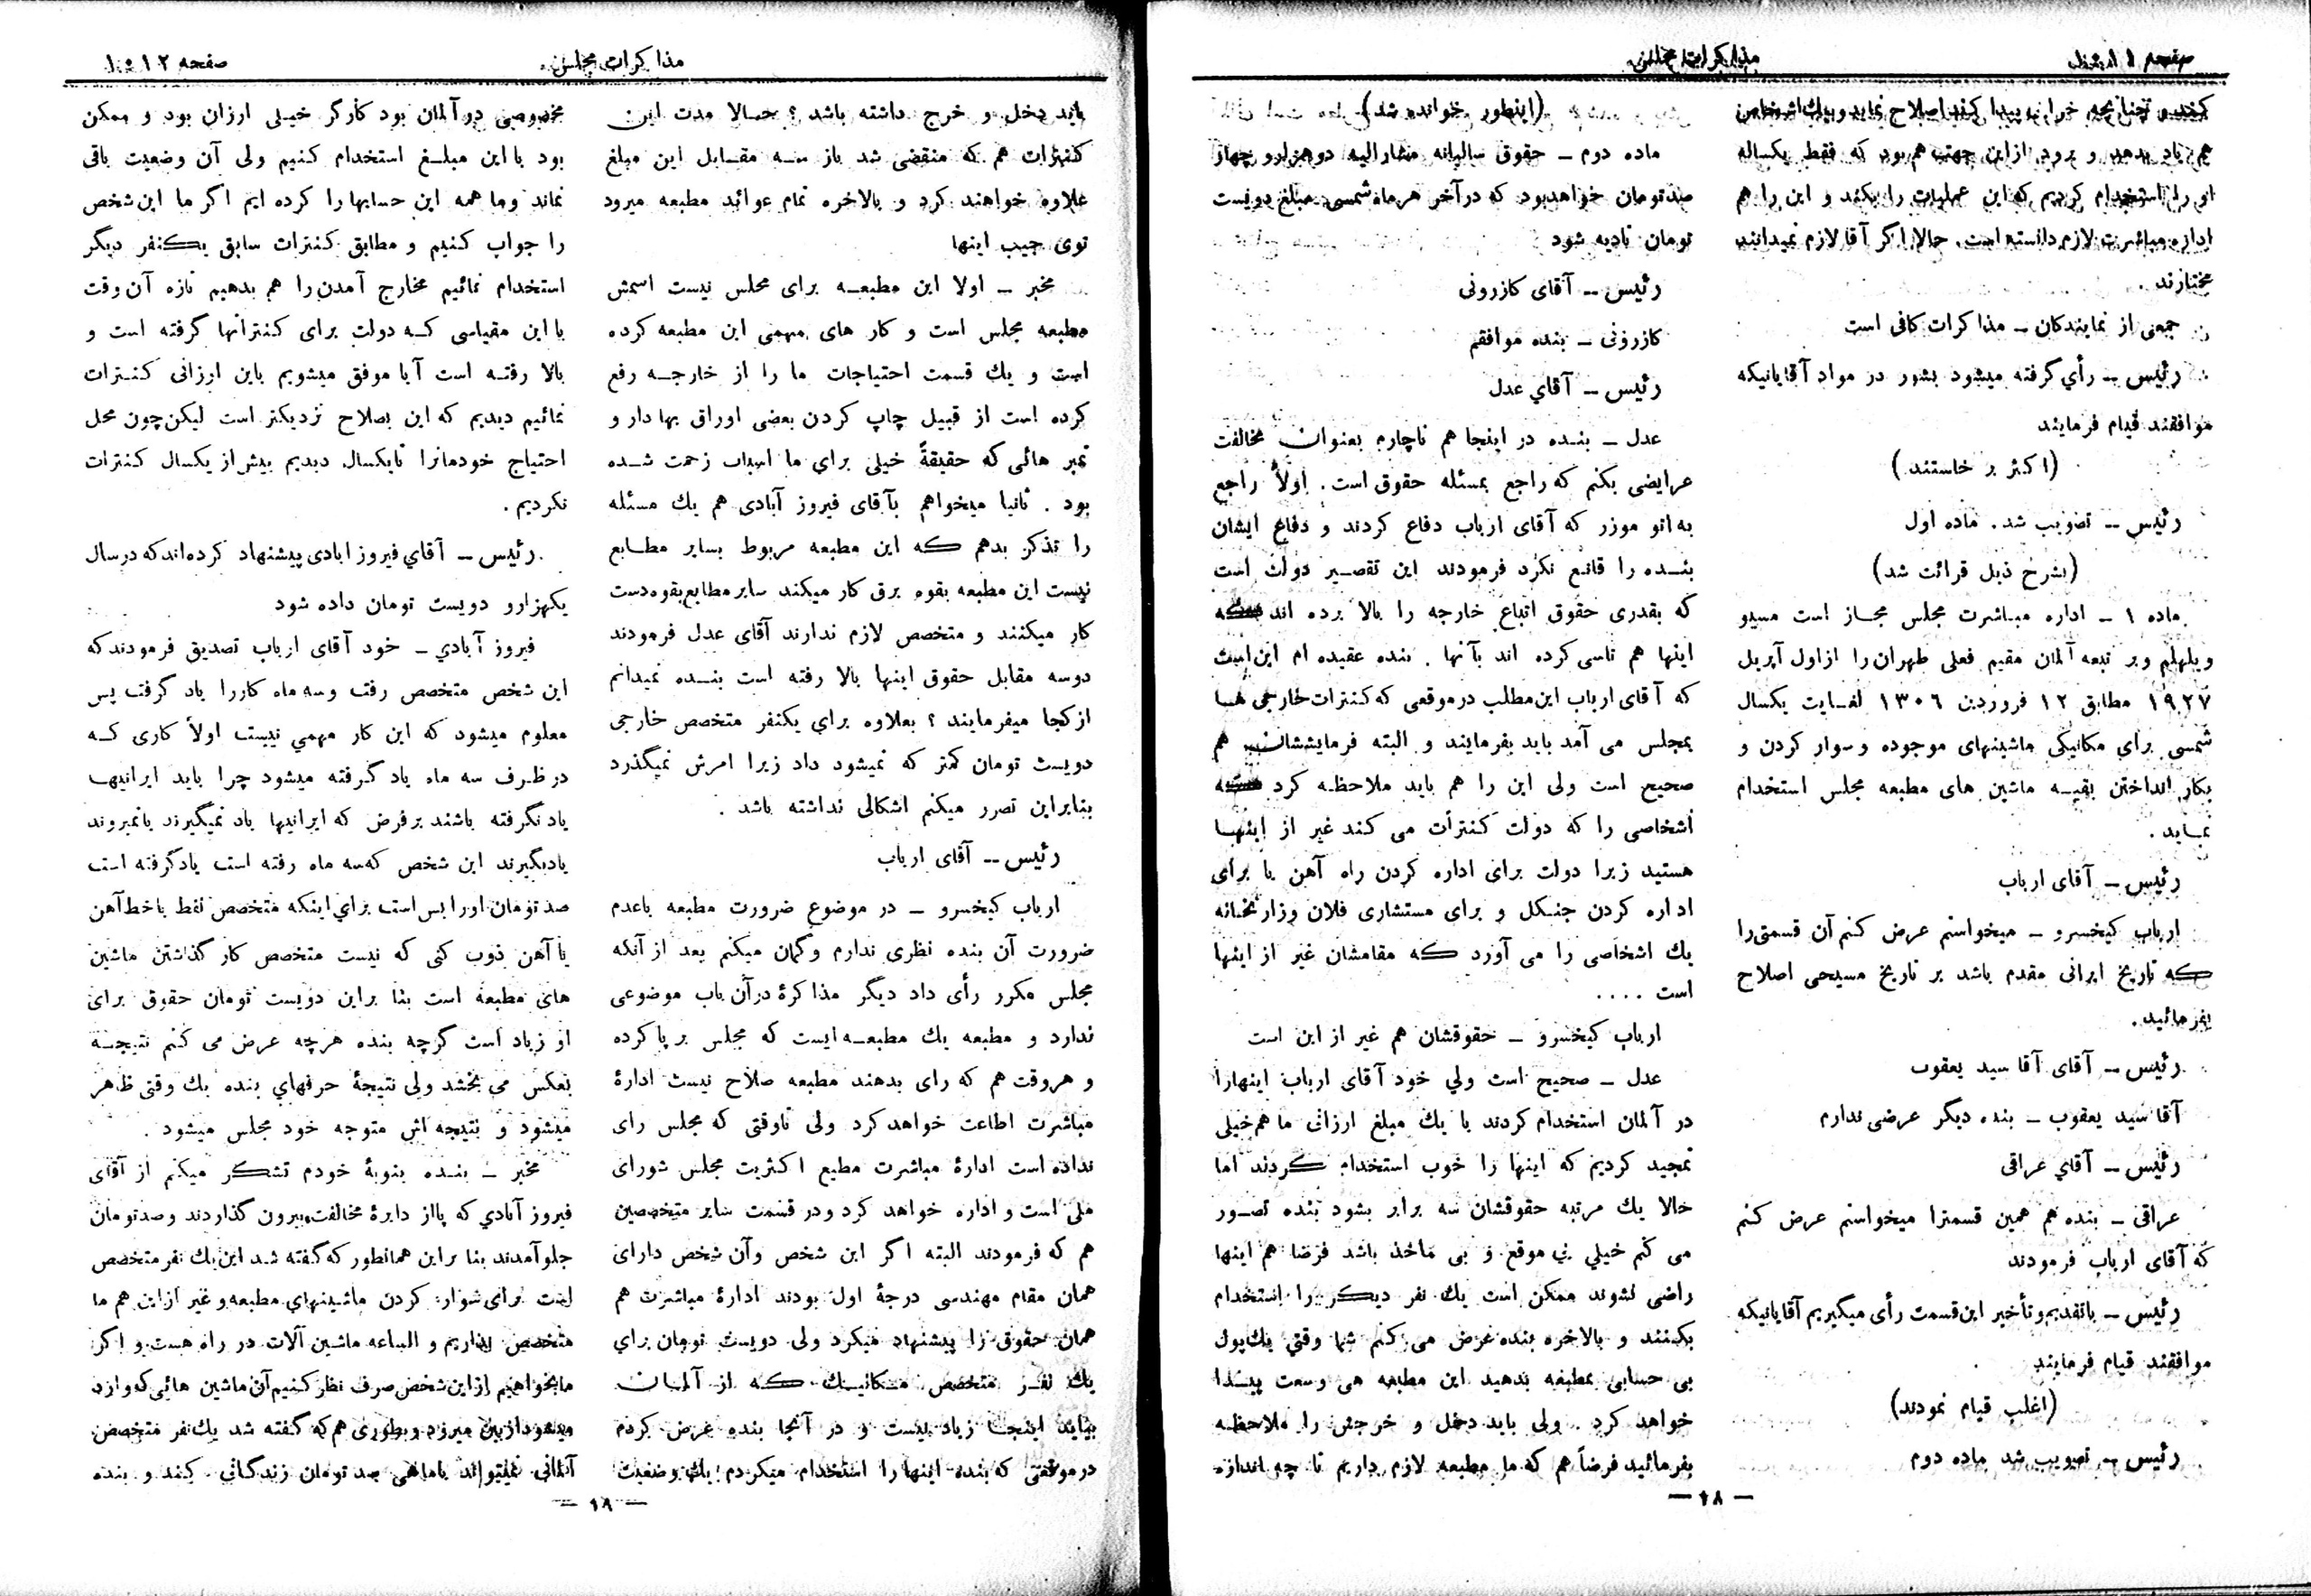 مذاکرات مجلس
کند و چنانچه خرابه پیدا کند اصلاح نماید و بیك اشخاص
هم یاد بدهد و برود ازاین جهت هم بود که فقط یکساله
او را استخدام کردیم که این عملیات را بکند و این را هم
اداره مباشرت لازم دانسته است. حالا اگر آقا لازم نمیدانند
مختارند .
جمعی از نمایندکان ــ مذاکرات کافی است
رئیس ــ رأي گرفته میشود بشور در مواد آقایانیکه
موافقند قیام فرمایند
(اکثر بر خاستند)
رئیس ــ تصویب شد. ماده اول
(بشرح ذیل قرائت شد)
ماده ١ ــ اداره مباشرت مجلس مجاز است مسیو
ویلهلم وبر تبعه آلمان مقیم فعلی طهران را ازاول آپریل
١٩٢٧ مطابق ١٢ فروردین ١٣٠٦ لغایت یکسال
شمسی برای مکانیکی ماشینهای موجوده و سوار کردن و
بکار انداختن بقیه ماشین های مطبعه مجلس استخدام
نماید .
رئیس ــ آقای ارباب
ارباب کیخسرو ــ میخواستم عرض کنم آن قسمتی را
که تاریخ ایرانی مقدم باشد بر تاریخ مسیحی اصلاح
بفرمائید.
رئیس ــ آقای آقا سید یعقوب
آقا سید یعقوب ــ بنده دیگر عرضی ندارم
رئیس ــ آقاي عراقی
عراقی ــ بنده هم همین قسمترا میخواستم عرض کنم
که آقای ارباب فرمودند
رئیس ــ باتقدیم و تأخیر این قسمت رأی میگیریم آقایانیکه
موافقند قیام فرمایند
(اغلب قیام نمودند)
رئیس ــ تصویب شد ماده دوم
(اینطور خوانده شد)
ماده دوم ــ حقوق سالیانه مشارالیه دوهزارو چهار
صد تومان خواهدبود که درآخر هرماه شمسی مبلغ دویست
تومان تادیه شود
رئیس ــ آقای کازرونی
کازرونی ــ بنده موافقم
رئیس ــ آقاي عدل
عدل ــ بنده در اینجا هم ناچارم بعنوان مخالفت
عرایضی بکنم که راجع بمسئله حقوق است. اولاً راجع
به اتو موزر که آقای ارباب دفاع کردند و دفاع ایشان
بنده را قانع نکرد فرمودند این تقصیر دولت است
که بقدری حقوق اتباع خارجه را بالا برده اند که
اینها هم تاسی کرده اند بآنها . بنده عقیده ام این است
که آقای ارباب این مطلب درموقعی که کنترات خارجی ها
بمجلس می آمد باید بفرمایند و البته فرمایششان هم
صحیح است ولی این را هم باید ملاحظه کرد که
اشخاصی را که دولت کنترات می کند غیر از اینها
هستند زیرا دولت برای اداره کردن راه آهن یا برای
اداره کردن جنکل و برای مستشاری فلان وزارتخانه
یك اشخاصی را می آورد که مقامشان غیر از اینها
است ....
ارباب کیخسرو ــ حقوقشان هم غیر از این است
عدل ــ صحیح است ولي خود آقای ارباب اینهارا
در آلمان استخدام کردند با یك مبلغ ارزانی ما هم خیلی
تمجید کردیم که اینها را خوب استخدام کردند اما
حالا یك مرتبه حقوقشان سه برابر بشود بنده تصور
می کنم خیلي بي موقع و بی ماخذ باشد فرضا هم اینها
راضی نشوند ممکن است یك نفر دیگر را استخدام
بکنند و بالاخره بنده عرض می کنم شما وقتي یك پول
بی حسابی بمطبعه بدهید این مطبعه هی وسعت پیدا
خواهد کرد . ولی باید دخل و خرجش را ملاحظه
بفرمائید فرضاً هم که ما مطبعه لازم داریم تا چه اندازه
— ١٨ —
صفحه ١٢
مذاکرات مجلس
باید دخل و خرج داشته باشد ؟ حالا مدت این
کنترات هم که منقضی شد باز سه مقابل این مبلغ
علاوه خواهند کرد و بالاخره تمام عوائد مطبعه میرود
توی جیب اینها
مخبر ــ اولا این مطبعه برای مجلس نیست اسمش
مطبعه مجلس است و کار های مهمی این مطبعه کرده
است و یك قسمت احتیاجات ما را از خارجه رفع
کرده است از قبیل چاپ کردن بعضی اوراق بهادار و
تمبر هائی که حقیقةً خیلی براي ما اسباب زحمت شده
بود . ثانیا میخواهم بآقای فیروز آبادی هم یك مسئله
را تذکر بدهم که این مطبعه مربوط بسایر مطابع
نیست این مطبعه بقوه برق کار میکند سایر مطابع بقوه دست
کار میکنند و متخصص لازم ندارند آقای عدل فرمودند
دوسه مقابل حقوق اینها بالا رفته است بنده نمیدانم
ازکجا میفرمایند ؟ بعلاوه براي یکنفر متخصص خارجی
دویست تومان کمتر که نمیشود داد زیرا امرش نمیگذرد
بنابراین تصرر میکنم اشکالی نداشته باشد .
رئیس ــ آقای ارباب
ارباب کیخسرو ــ در موضوع ضرورت مطبعه باعدم
ضرورت آن بنده نظری ندارم وگمان میکنم بعد از آنکه
مجلس مکرر رأی داد دیگر مذاکرهٔ درآن باب موضوعی
ندارد و مطبعه یك مطبعه ایست که مجلس بر پا کرده
و هروقت هم که رای بدهند مطبعه صلاح نیست ادارهٔ
مباشرت اطاعت خواهد کرد ولی تاوقتی که مجلس رای
نداده است ادارهٔ مباشرت مطیع اکثریت مجلس شورای
ملی است و اداره خواهد کرد ودر قسمت سایر متخصصین
هم که فرمودند البته اگر این شخص وآن شخص دارای
همان مقام مهندسی درجهٔ اول بودند ادارهٔ مباشرت هم
همان حقوق را پیشنهاد میکرد ولی دویست تومان برای
یك نفر متخصص مکانیك که از آلمان
بیاید اینجا زیاد نیست و در آنجا بنده عرض کردم
درموقعی که بنده اینها را استخدام میکردم یك وضعیت
مخصوصی در آلمان بود کارگر خیلی ارزان بود و ممکن
بود با این مبلغ استخدام کنیم ولی آن وضعیت باقی
نماند وما همه این حسابها را کرده ایم اگر ما این شخص
را جواب کنیم و مطابق کنترات سابق یکنفر دیگر
استخدام نمائیم مخارج آمدن را هم بدهیم تازه آن وقت
با این مقیاسی که دولت برای کنتراتها گرفته است و
بالا رفته است آیا موفق میشویم باین ارزانی کنترات
نمائیم دیدیم که این بصلاح نزدیکتر است لیکن چون محل
احتیاج خودمانرا تایکسال دیدیم بیش از یکسال کنترات
نکردیم .
رئیس ــ آقاي فیروز ابادی پیشنهاد کرده اند که درسال
یکهزارو دویست تومان داده شود
فیروز آبادي ــ خود آقای ارباب تصدیق فرمودند که
این شخص متخصص رفت وسه ماه کاررا یاد گرفت پس
معلوم میشود که این کار مهمي نیست اولاً کاری که
درظرف سه ماه یاد گرفته میشود چرا باید ایرانیها
یاد نگرفته باشند برفرض که ایرانیها یاد نمیگیرند یانمیروند
یادبگیرند این شخص که سه ماه رفته است یادگرفته است
صد تومان اورا بس است برای اینکه متخصص نفط یا خط آهن
یا آهن ذوب کنی که نیست متخصص کار گذاشتن ماشین
های مطبعه است بنا براین دویست تومان حقوق برای
او زیاد است گرچه بنده هرچه عرض می کنم نتیجه
بعکس می بخشد ولی نتیجهٔ حرفهاي بنده یك وقتی ظاهر
میشود و نتیجه اش متوجه خود مجلس میشود .
مخبر ــ بنده بنوبهٔ خودم تشکر میکنم از آقای
فیروز آبادي که پااز دایرهٔ مخالفت بیرون گذاردند و صدتومان
جلو آمدند بنا براین همانطور که گفته شد این یك نفر متخصص
است برای سوار کردن ماشینهاي مطبعه و غیر ازاین هم ما
متخصص نداریم و الساعه ماشین آلات در راه هست و اگر
مابخواهیم ازاین شخص صرف نظر کنیم آن ماشین هائی که وارد
میشود ازبین میرود و بطوری هم که گفته شد یك نفر متخصص
آلمانی نمیتواند باماهی صد تومان زندگانی کند و بنده
— ١٩ —